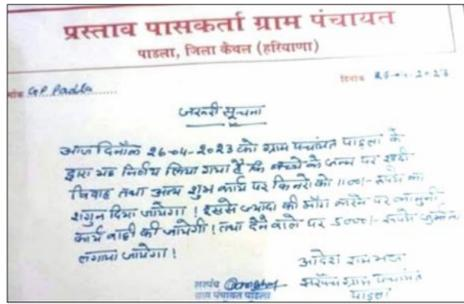 प्रस्ताव पासकर्ता ग्राम पंचायत
पाडला, जिला कैथल (हरियाणा)
क्रमांक GP Padla...... दिनांक 26-04-2023
जरूरी सूचना
आज दिनांक 26-04-2023 को ग्राम पंचायत पाडला के
द्वारा यह निर्णय लिया गया है कि बच्चे के जन्म पर शादी
विवाह तथा अन्य शुभ कार्य पर किन्नरो को 1100/- रूपये का
शगुन दिया जायेगा ! इससे ज्यादा की माँग करने पर कानूनी
कार्य वाही की जायेगी ! तथा देने वाले पर 5000/- रूपये जुर्माना
लगाया जायेगा !
आदेश
सरपंच सरपंच ग्राम पंचायत
ग्राम पंचायत पाडला पाडला